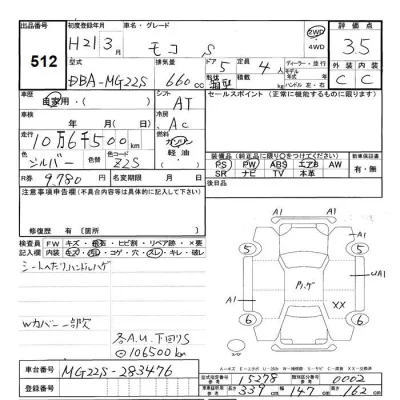 出品番号 初度登録年月 車名・グレード 2WD 4WD 評価点
512 H21 3月 モコ S 3.5
型式 排気量 ドア 定員 ディーラー・並行 外装 内装
DBA-MG22S 660cc 5 4人 モデル 年 ハンドル 左・右 C C
車歴 シフト 形状 セールスポイント（正常に機能するものに限ります）
自家用・( ) AT
車検 冷房
年 月 Ac
走行 燃料
10万6千500km ガソリン 軽油
色 色替 色コード 装備品（純正品に限り○をつけてください） 新車保証書
シルバー Z2S PS PW ABS エアB AW 有・無
R券 9,780 名変期限 月 日 SR ナビ TV 本革
注意事項申告欄（不具合内容等は具体的に記入して下さい） 後日品
修復歴 有〔箇所 〕
検査員記入欄 FW キズ・飛石・ヒビ割・リペア跡・×要
内装 キズ・汚レ・コゲ・穴・スレ・キレ・破レ
シートヘたり、ハンドルハゲ
Wカバー一部欠
各A.U.下回りS
106500km
A1 A1
5 5
A1 UA1
XX
6 6
A1
車台番号 MG22S-283476
登録番号
型式指定番号 15278 類別区分番号 0002
長さ 339 幅 147 高さ 162 cm